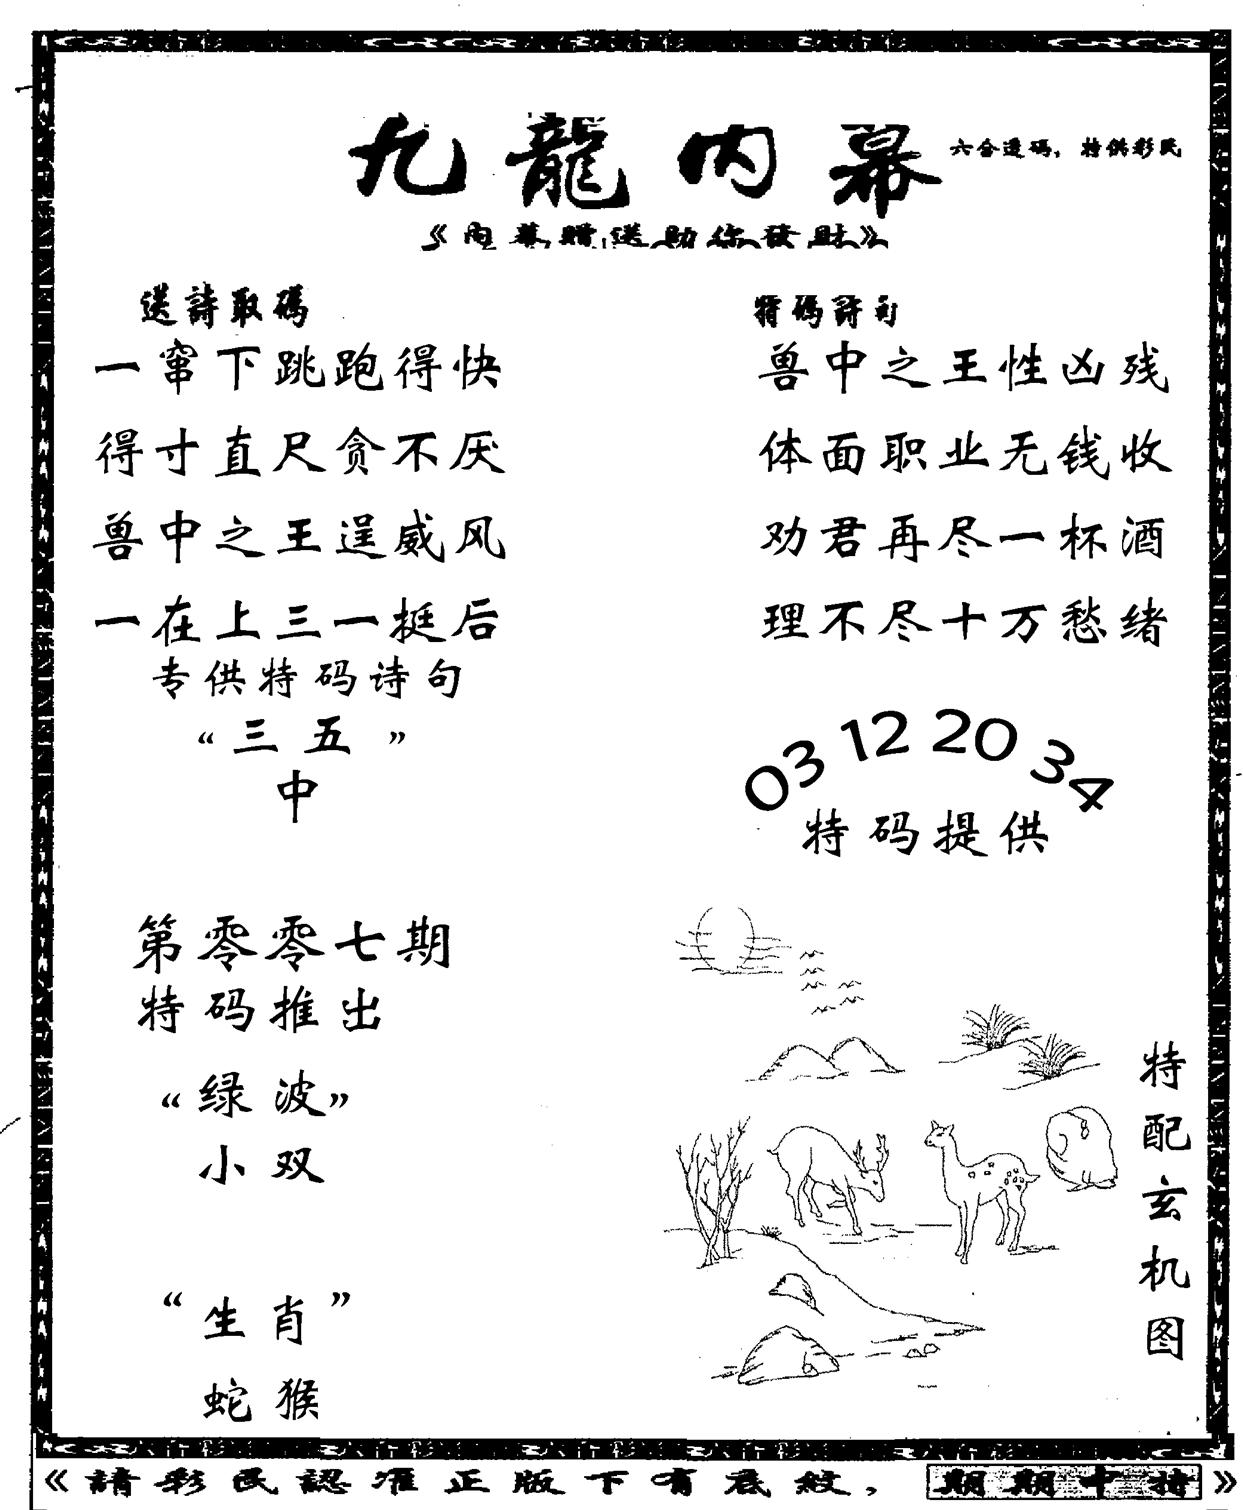 九龍内幕
六合透码，特供彩民
《内幕赠送助你發財》
送詩取碼
一窜下跳跑得快
得寸直尺贪不厌
兽中之王逞威风
一在上三一挺后
专供特码诗句
“三五”
中
特碼詩句
兽中之王性凶残
体面职业无钱收
劝君再尽一杯酒
理不尽十万愁绪
03 12 20 34
特码提供
第零零七期
特码推出
“绿波”
小双
“生肖”
蛇猴
特配玄机图
《請彩民認准正版下有底紋，期期中特》